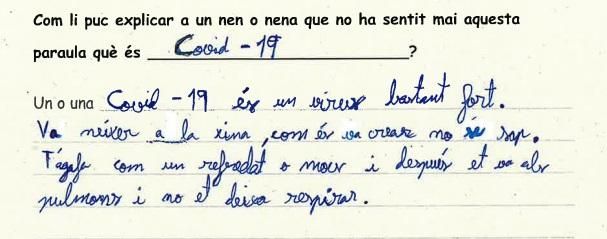 Com li puc explicar a un nen o nena que no ha sentit mai aquesta
paraula què és Covid - 19 ?
Un o una Covid - 19 és un virus bastant fort.
Va néixer a la xina, com és va crear no se sap.
T'agafa com un refredat o mocs i després et va als
pulmons i no et deixa respirar.